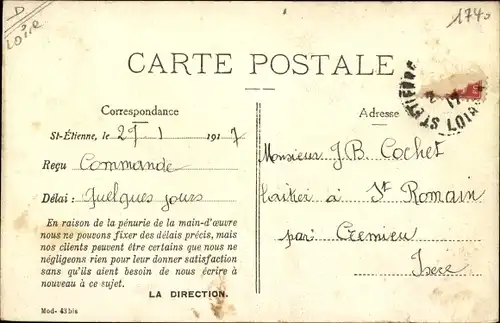 D
Loire
1740
CARTE POSTALE
Correspondance
St-Étienne, le 29 1 1917
Reçu Commande
Délai : Quelques jours
En raison de la pénurie de la main-d'œuvre
nous ne pouvons fixer des délais précis, mais
nos clients peuvent être certains que nous ne
négligeons rien pour leur donner satisfaction
sans qu'ils aient besoin de nous écrire à
nouveau à ce sujet.
LA DIRECTION.
Mod- 43 bis
ST ETIENNE
LOIRE
Adresse
Monsieur J B Cochet
à St Romain
par Cremieu
Isere